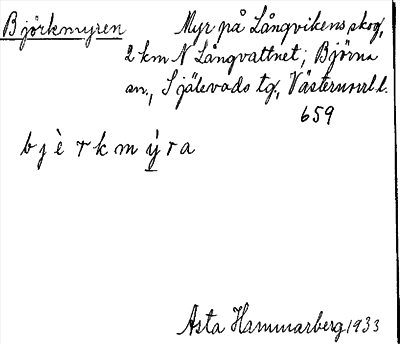 Björkmyren
Myr på Långvikens skog,
2 km N Långvattnet; Björna
sn., Själevads tg, Västernorrl. l.
659
b j è r k m ý r a
Asta Hammarberg 1933